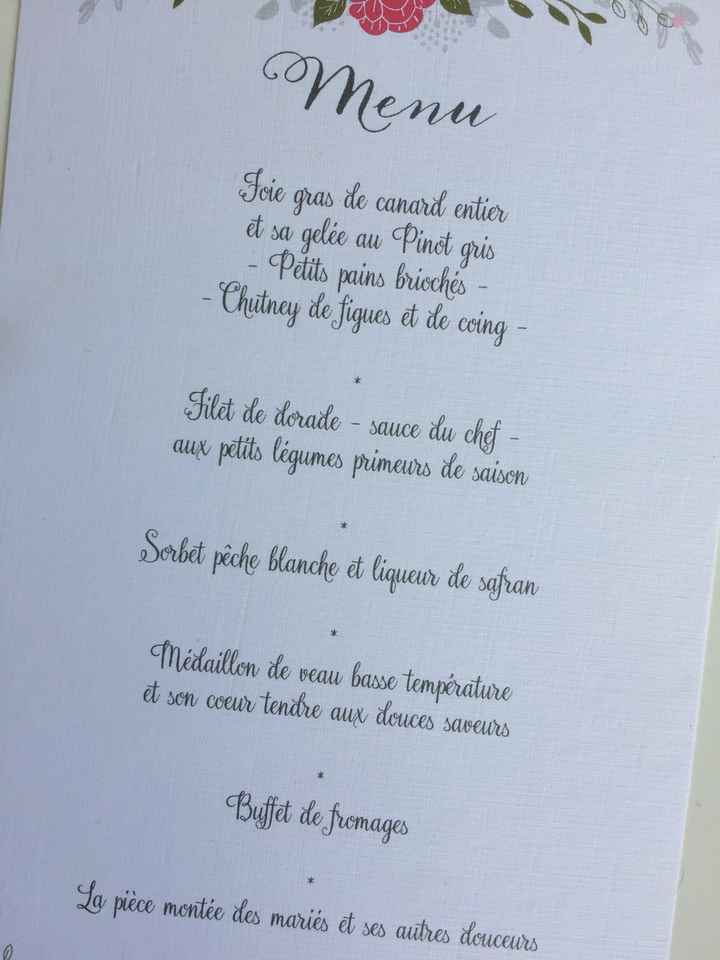 Menu
Foie gras de canard entier
et sa gelée au Pinot gris
- Petits pains briochés -
- Chutney de figues et de coing -
*
Filet de dorade - sauce du chef -
aux petits légumes primeurs de saison
*
Sorbet pêche blanche et liqueur de safran
*
Médaillon de veau basse température
et son coeur tendre aux douces saveurs
*
Buffet de fromages
*
La pièce montée des mariés et ses autres douceurs